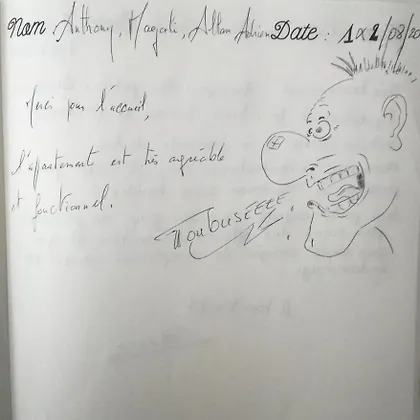 Nom Anthony, Magali, Allan Adrien Date : 1 α 2/08/20
Merci pour l'accueil,
l'apartement est très agréable
et fonctionnel.